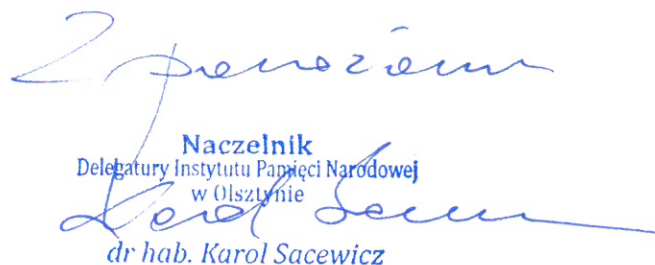 Z poważaniem
Naczelnik
Delegatury Instytutu Pamięci Narodowej
w Olsztynie
dr hab. Karol Sacewicz